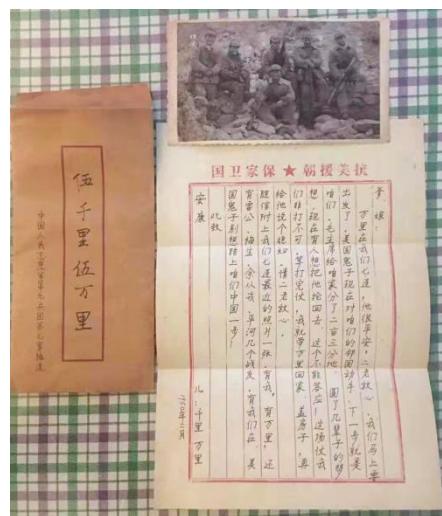 伍千里伍万里
中国人民志愿军第九兵团第七穿插连
抗美援朝★保家卫国
爹、娘：
万里在我们七连，他很平安，二老放心。我们马上要
出发了，美国鬼子现在对咱们的邻国动手，下一步就是
咱们。毛主席给咱家分了二亩三分地，圆了几辈子的梦
想，现在有人想把他抢回去，这个不能答应！这场仗我
们非打不可，等打完仗，我就带万里回家，盖房子，再
给他说个媳妇，二老放心。
随信附上我们七连最近的照片一张，有我，有万里，还
有雷公、梅生、余从戎、平河几个战友，有我们在，美
国鬼子别想踏上咱们中国一步！
此致
安康
儿：千里 万里